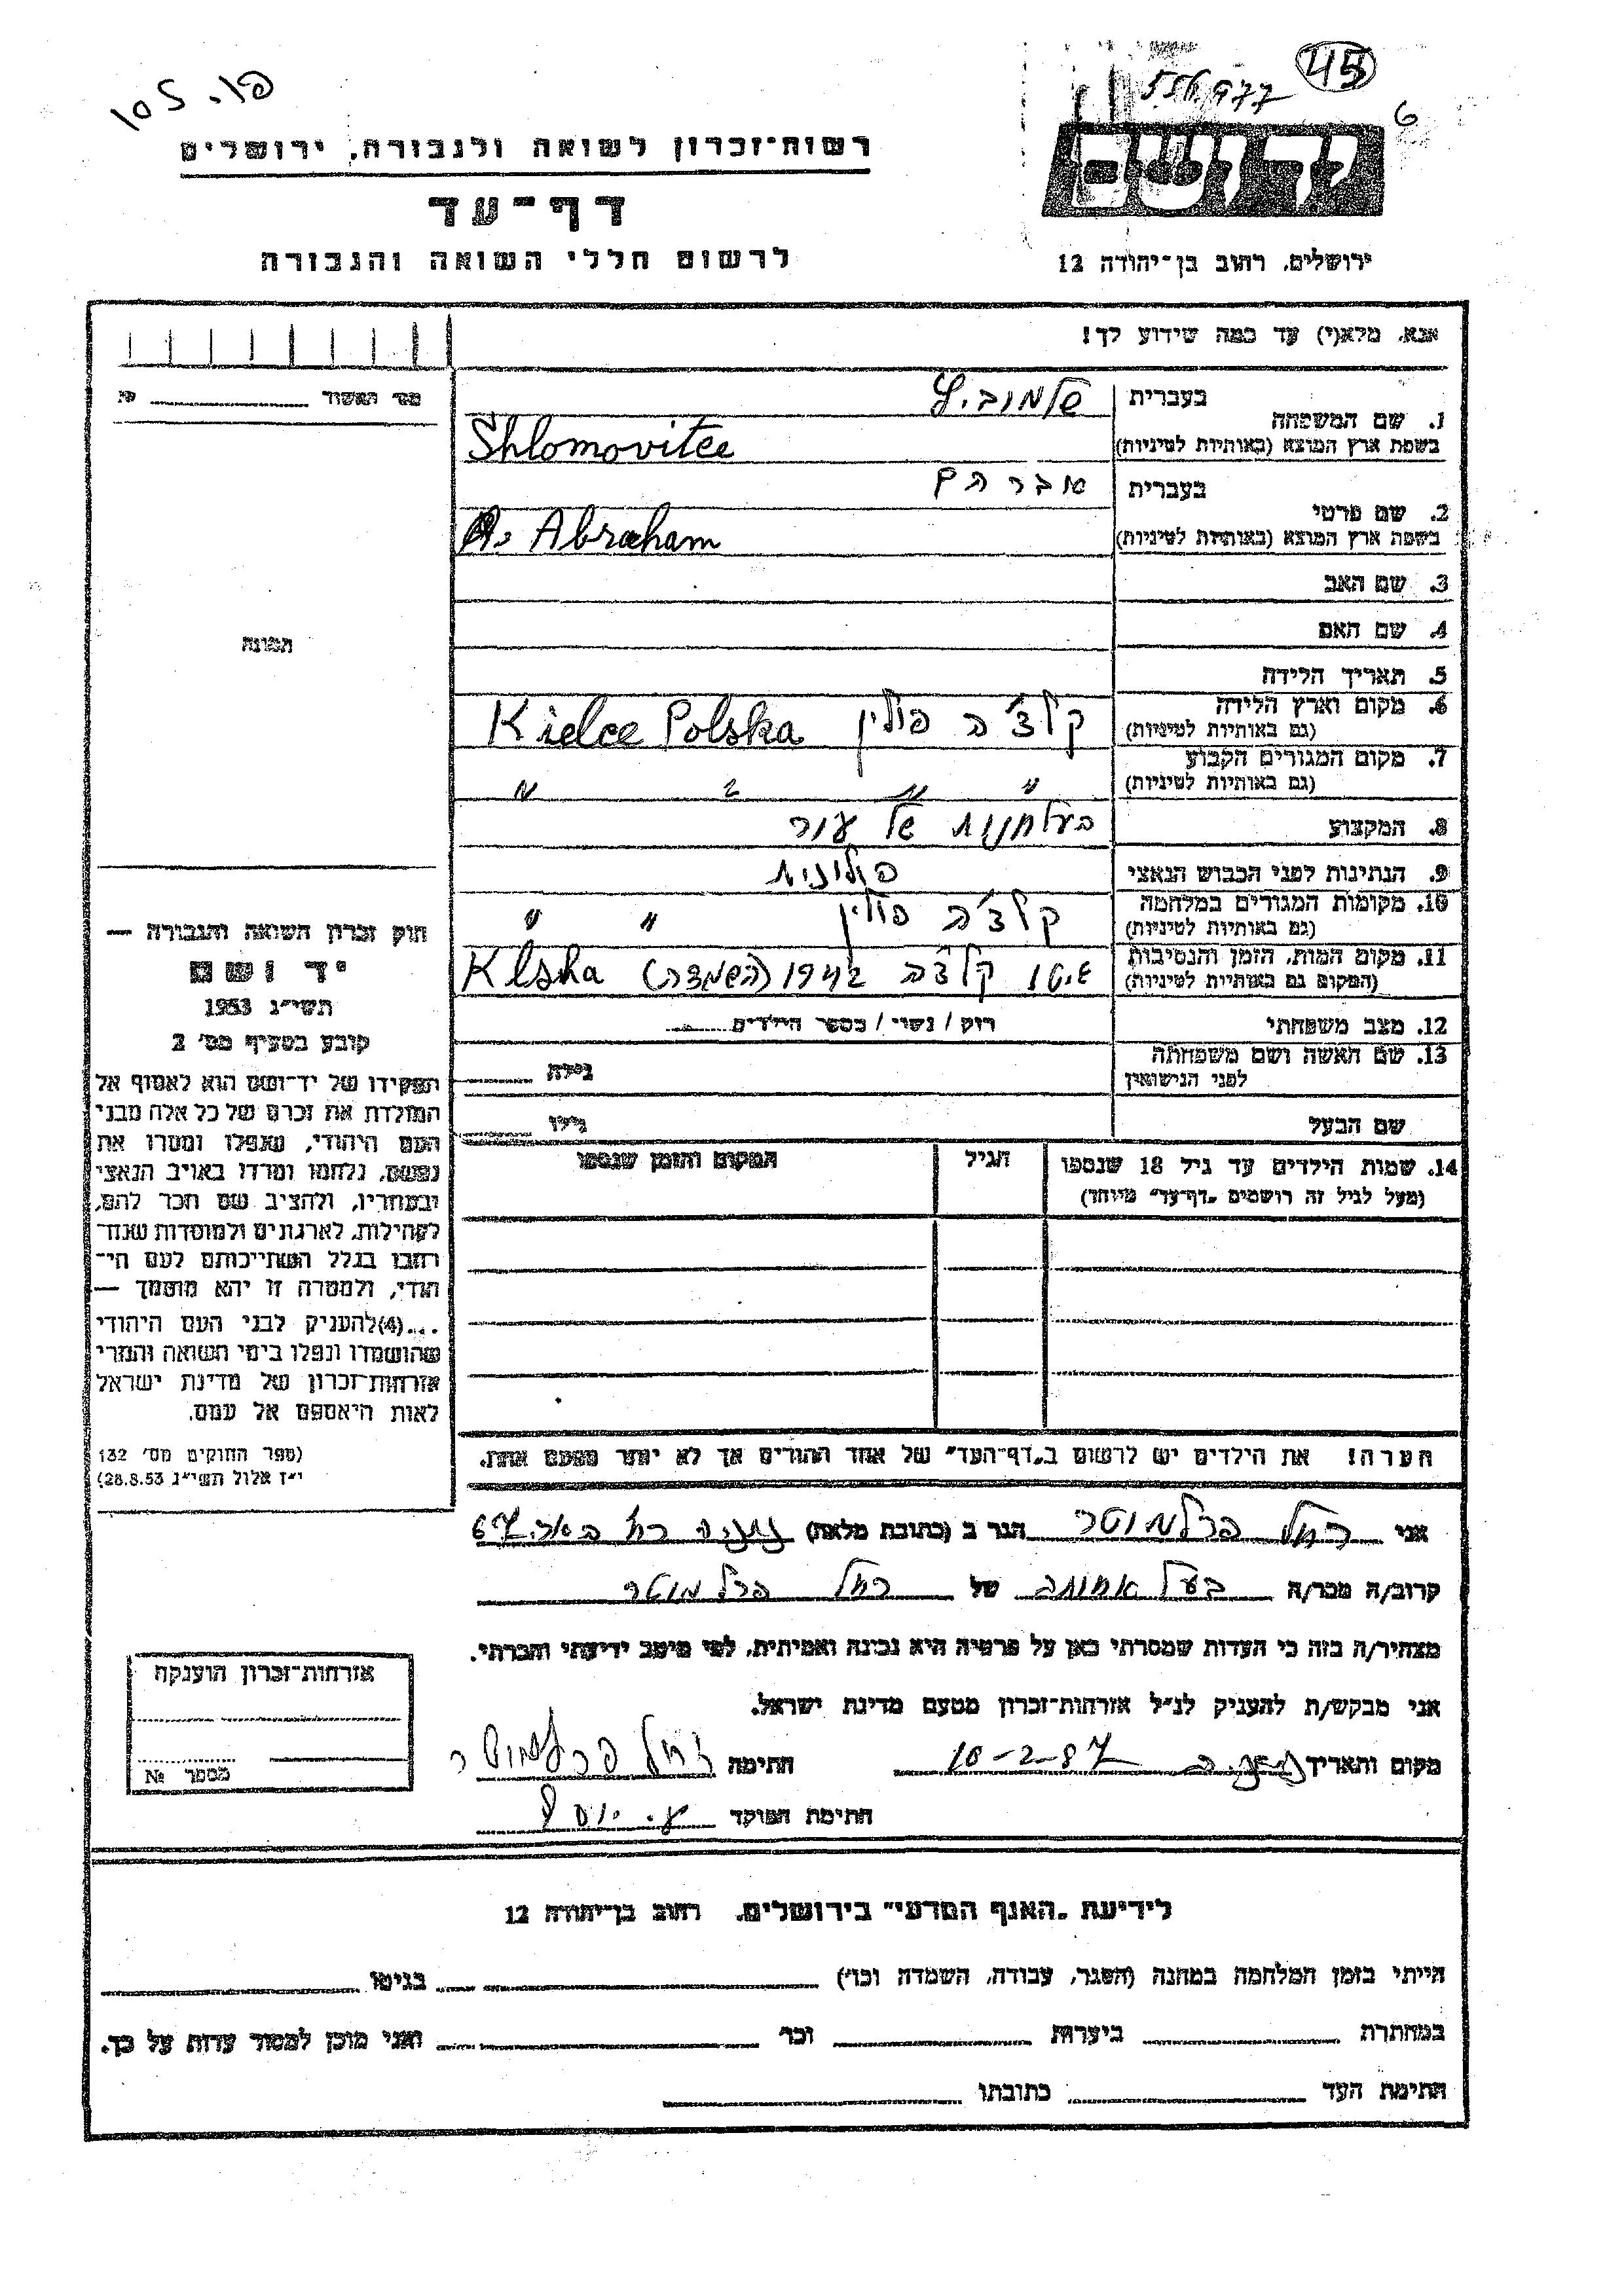 105 .פו
556977
45
6
רשות־זכרון לשואה ולגבורה, ירושלים
דף־עד
לרשום חללי השואה והגבורה
יד ושם
ירושלים, רחוב בן־יהודה 12
אנא, מלא(י) עד כמה שידוע לך!
מס׳ האשור № 
1. שם המשפחה
בעברית שלמוביץ
בשפת ארץ המוצא (באותיות לטיניות) Shlomovitce
2. שם פרטי
בעברית אברהם
בשפת ארץ המוצא (באותיות לטיניות) A. Abraham
3. שם האב
4. שם האם
תמונה
5. תאריך הלידה
6. מקום וארץ הלידה (גם באותיות לטיניות) קלצ׳ה פולין Kielce Polska
7. מקום המגורים הקבוע (גם באותיות לטיניות) " " " "
8. המקצוע בעל חנות של עור
9. הנתינות לפני הכבוש הנאצי פולונית
10. מקומות המגורים במלחמה (גם באותיות לטיניות) קלצ׳ה פולין " "
11. מקום המות, הזמן והנסיבות (המקום גם באותיות לטיניות) גיטו קלצ׳ה 1942 (השמדה) Klska
12. מצב משפחתי רוק / נשוי / מספר הילדים
13. שם האשה ושם משפחתה לפני הנישואין גילה
שם הבעל גילו
14. שמות הילדים עד גיל 18 שנספו
(מעל לגיל זה רושמים „דף־עד" מיוחד)
הגיל
המקום והזמן שנספו
חוק זכרון השואה והגבורה —
יד ושם
תשי״ג 1953
קובע בסעיף מס׳ 2
תפקידו של יד־ושם הוא לאסוף אל
המולדת את זכרם של כל אלה מבני
העם היהודי, שנפלו ומסרו את
נפשם, נלחמו ומרדו באויב הנאצי
ובעוזריו, ולהציב שם וזכר להם,
לקהילות, לארגונים ולמוסדות שנח־
רבו בגלל השתייכותם לעם הי־
הודי, ולמטרה זו יהא מוסמך —
...(4)להעניק לבני העם היהודי
שהושמדו ונפלו בימי השואה והמרי
אזרחות־זכרון של מדינת ישראל
לאות היאספם אל עמם.
(ספר החוקים מס׳ 132
י״ז אלול תשי״ג 28.8.53)
הערה! את הילדים יש לרשום ב„דף־העד" של אחד ההורים אך לא יותר מפעם אחת.
אני רחל פרלמוטר הגר ב (כתובת מלאה) נתניה 67
קרוב/ה מכר/ה בעל אחותה של רחל פרלמוטר
מצהיר/ה בזה כי העדות שמסרתי כאן על פרטיה היא נכונה ואמיתית, לפי מיטב ידיעתי והכרתי.
אני מבקש/ת להעניק לנ״ל אזרחות־זכרון מטעם מדינת ישראל.
מקום ותאריך נתניה 10-2-87 חתימה רחל פרלמוטר
חתימת הפוקד
אזרחות־זכרון הוענקה
מספר №
לידיעת „האגף המדעי" בירושלים, רחוב בן־יהודה 12
הייתי בזמן המלחמה במחנה (הסגר, עבודה, השמדה וכו׳) בגיטו
במחתרת ביערות וכו׳ ואני מוכן למסור עדות על כך.
חתימת העד כתובתו